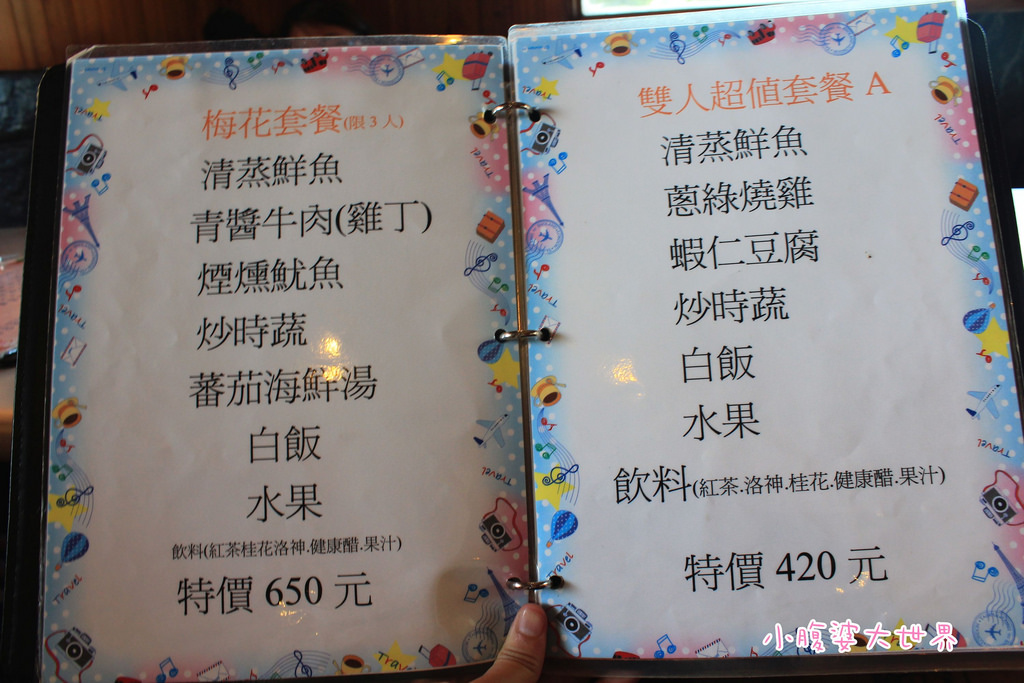 梅花套餐(限3人)
清蒸鮮魚
青醬牛肉(雞丁)
煙燻魷魚
炒時蔬
蕃茄海鮮湯
白飯
水果
飲料(紅茶桂花洛神.健康醋.果汁)
特價 650 元
雙人超值套餐 A
清蒸鮮魚
蔥綠燒雞
蝦仁豆腐
炒時蔬
白飯
水果
飲料(紅茶.洛神.桂花.健康醋.果汁)
特價 420 元
小腹婆大世界